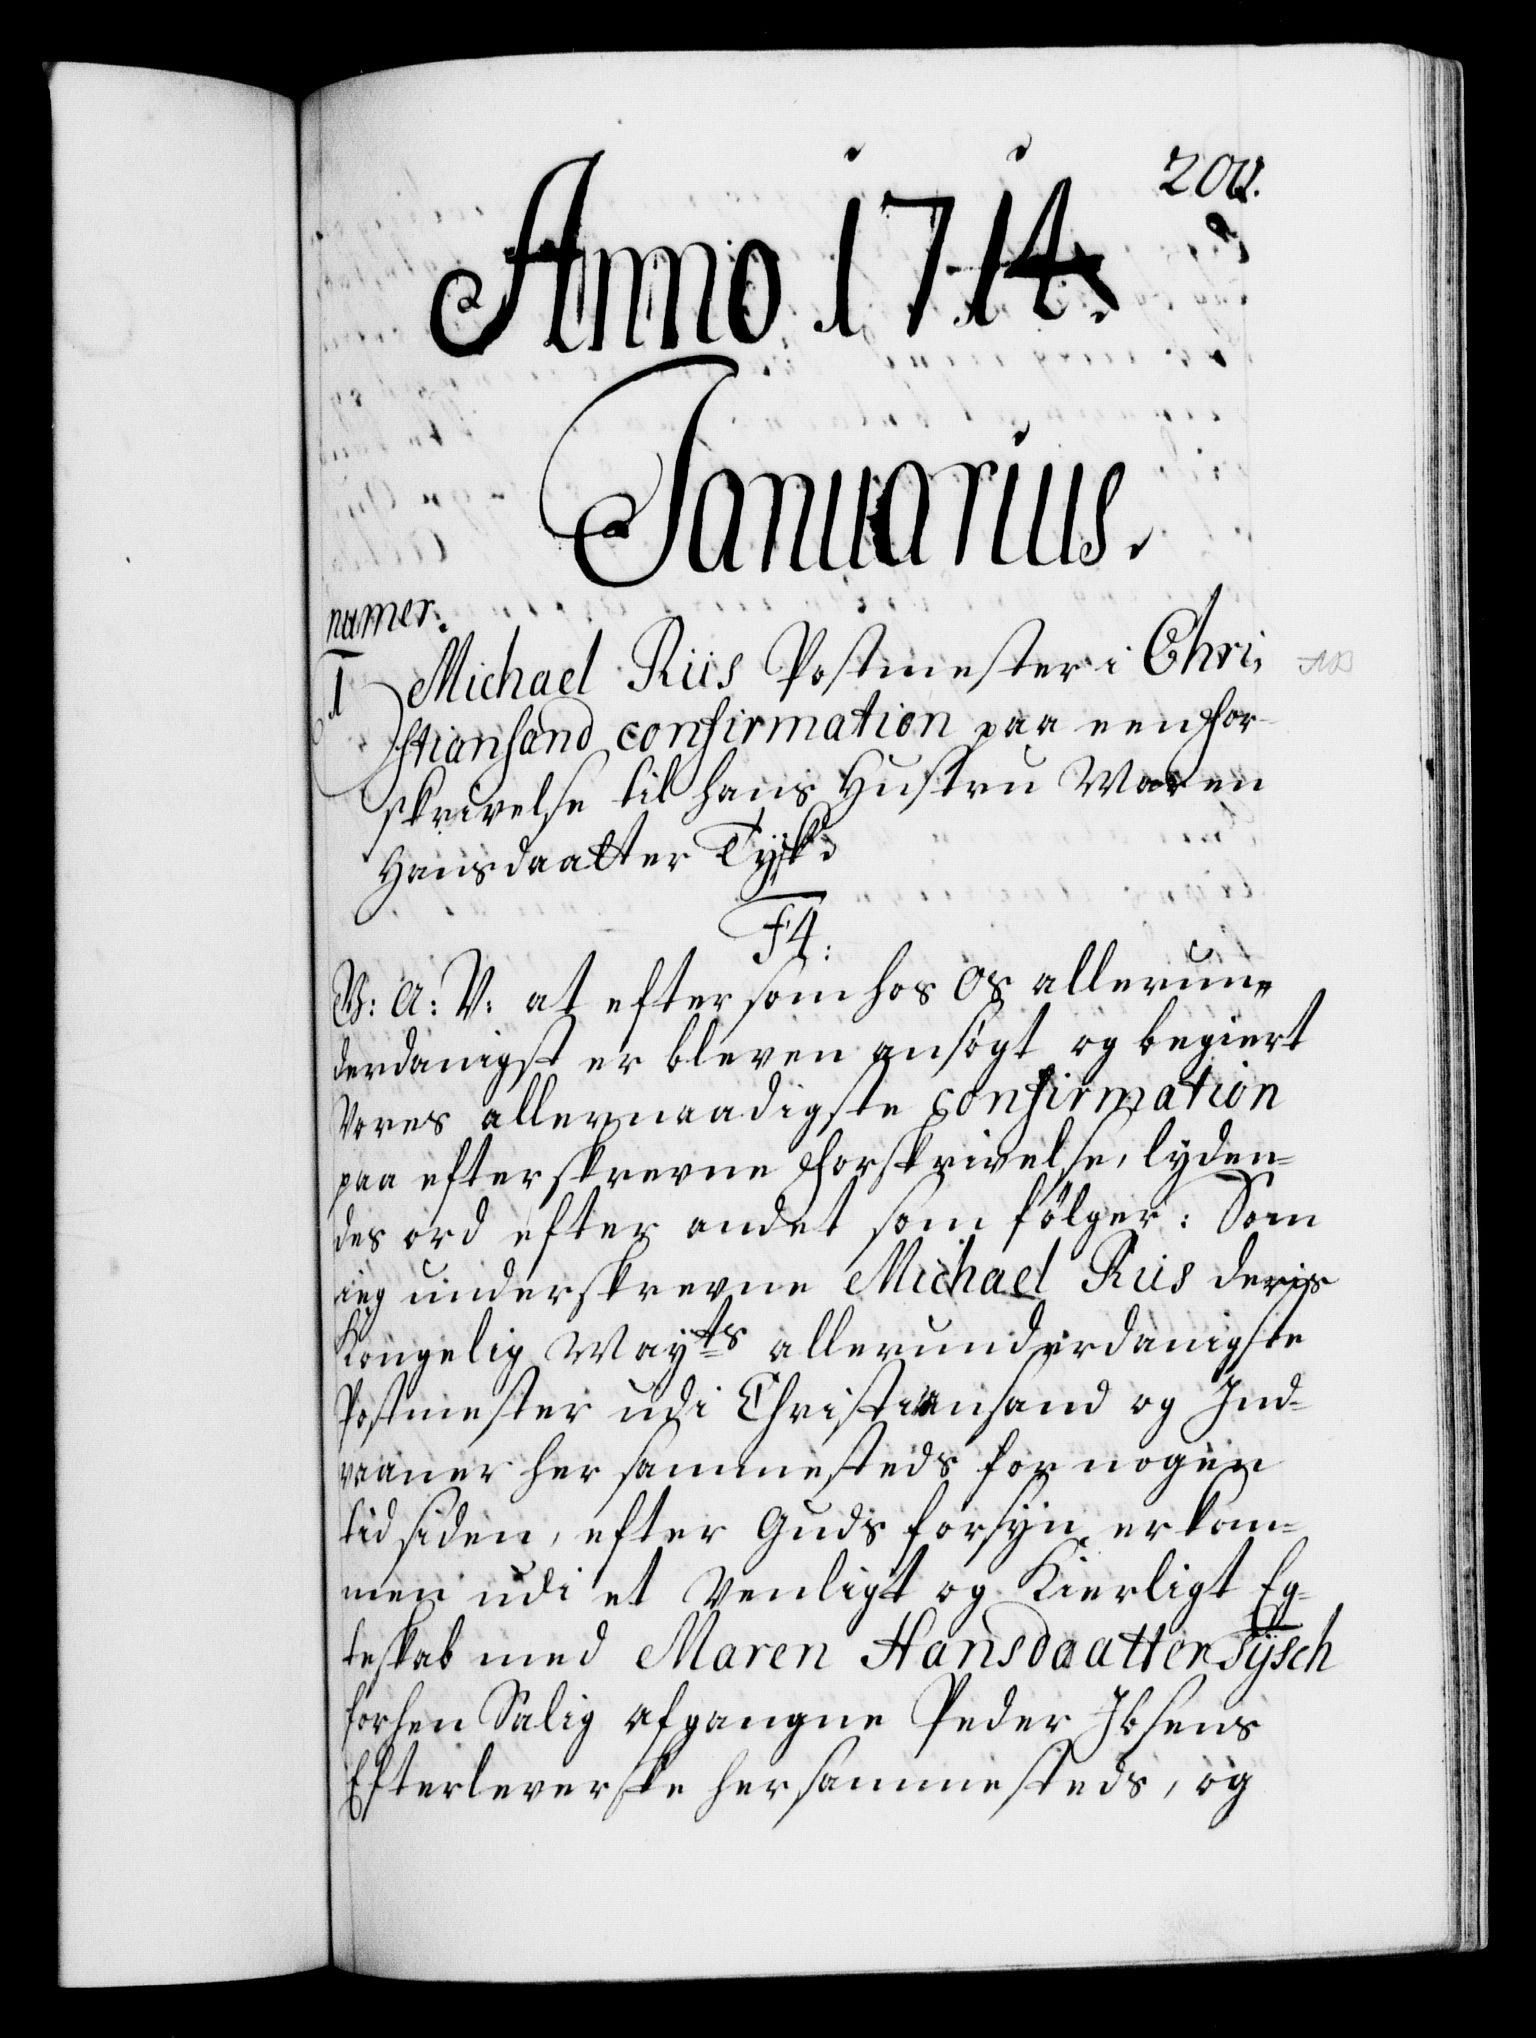 Anno 1714.
Januarius.
numer.
1 Michael Riis Postmester i Chri,
stiansand confirmation paa een for-
skrivelse til hans Hustru Maren
Hansdaatter Tysk.
F4:
V: A: V: at eftersom hos Os allerun,
derdanigst er bleven ansøgt og begiert
Vores allernaadigste confirmation
paa efterskrevne forskrivelse, lyden-
des ord efter andet som følger: Som
ieg underskrevne Michael Riis deris
Kongelig Mayts allerunderdanigste
Postmester udi Christiansand og Ind-
vaaner her sammesteds for nogen
tid siden, efter Guds forsÿn er kom-
men udi et Venligt og Kierligt Eg-
teskab med Maren Hansdaatter Tÿsch
forhen Salig afgangne Peder Ibsens
Efterleverske hersammesteds, og